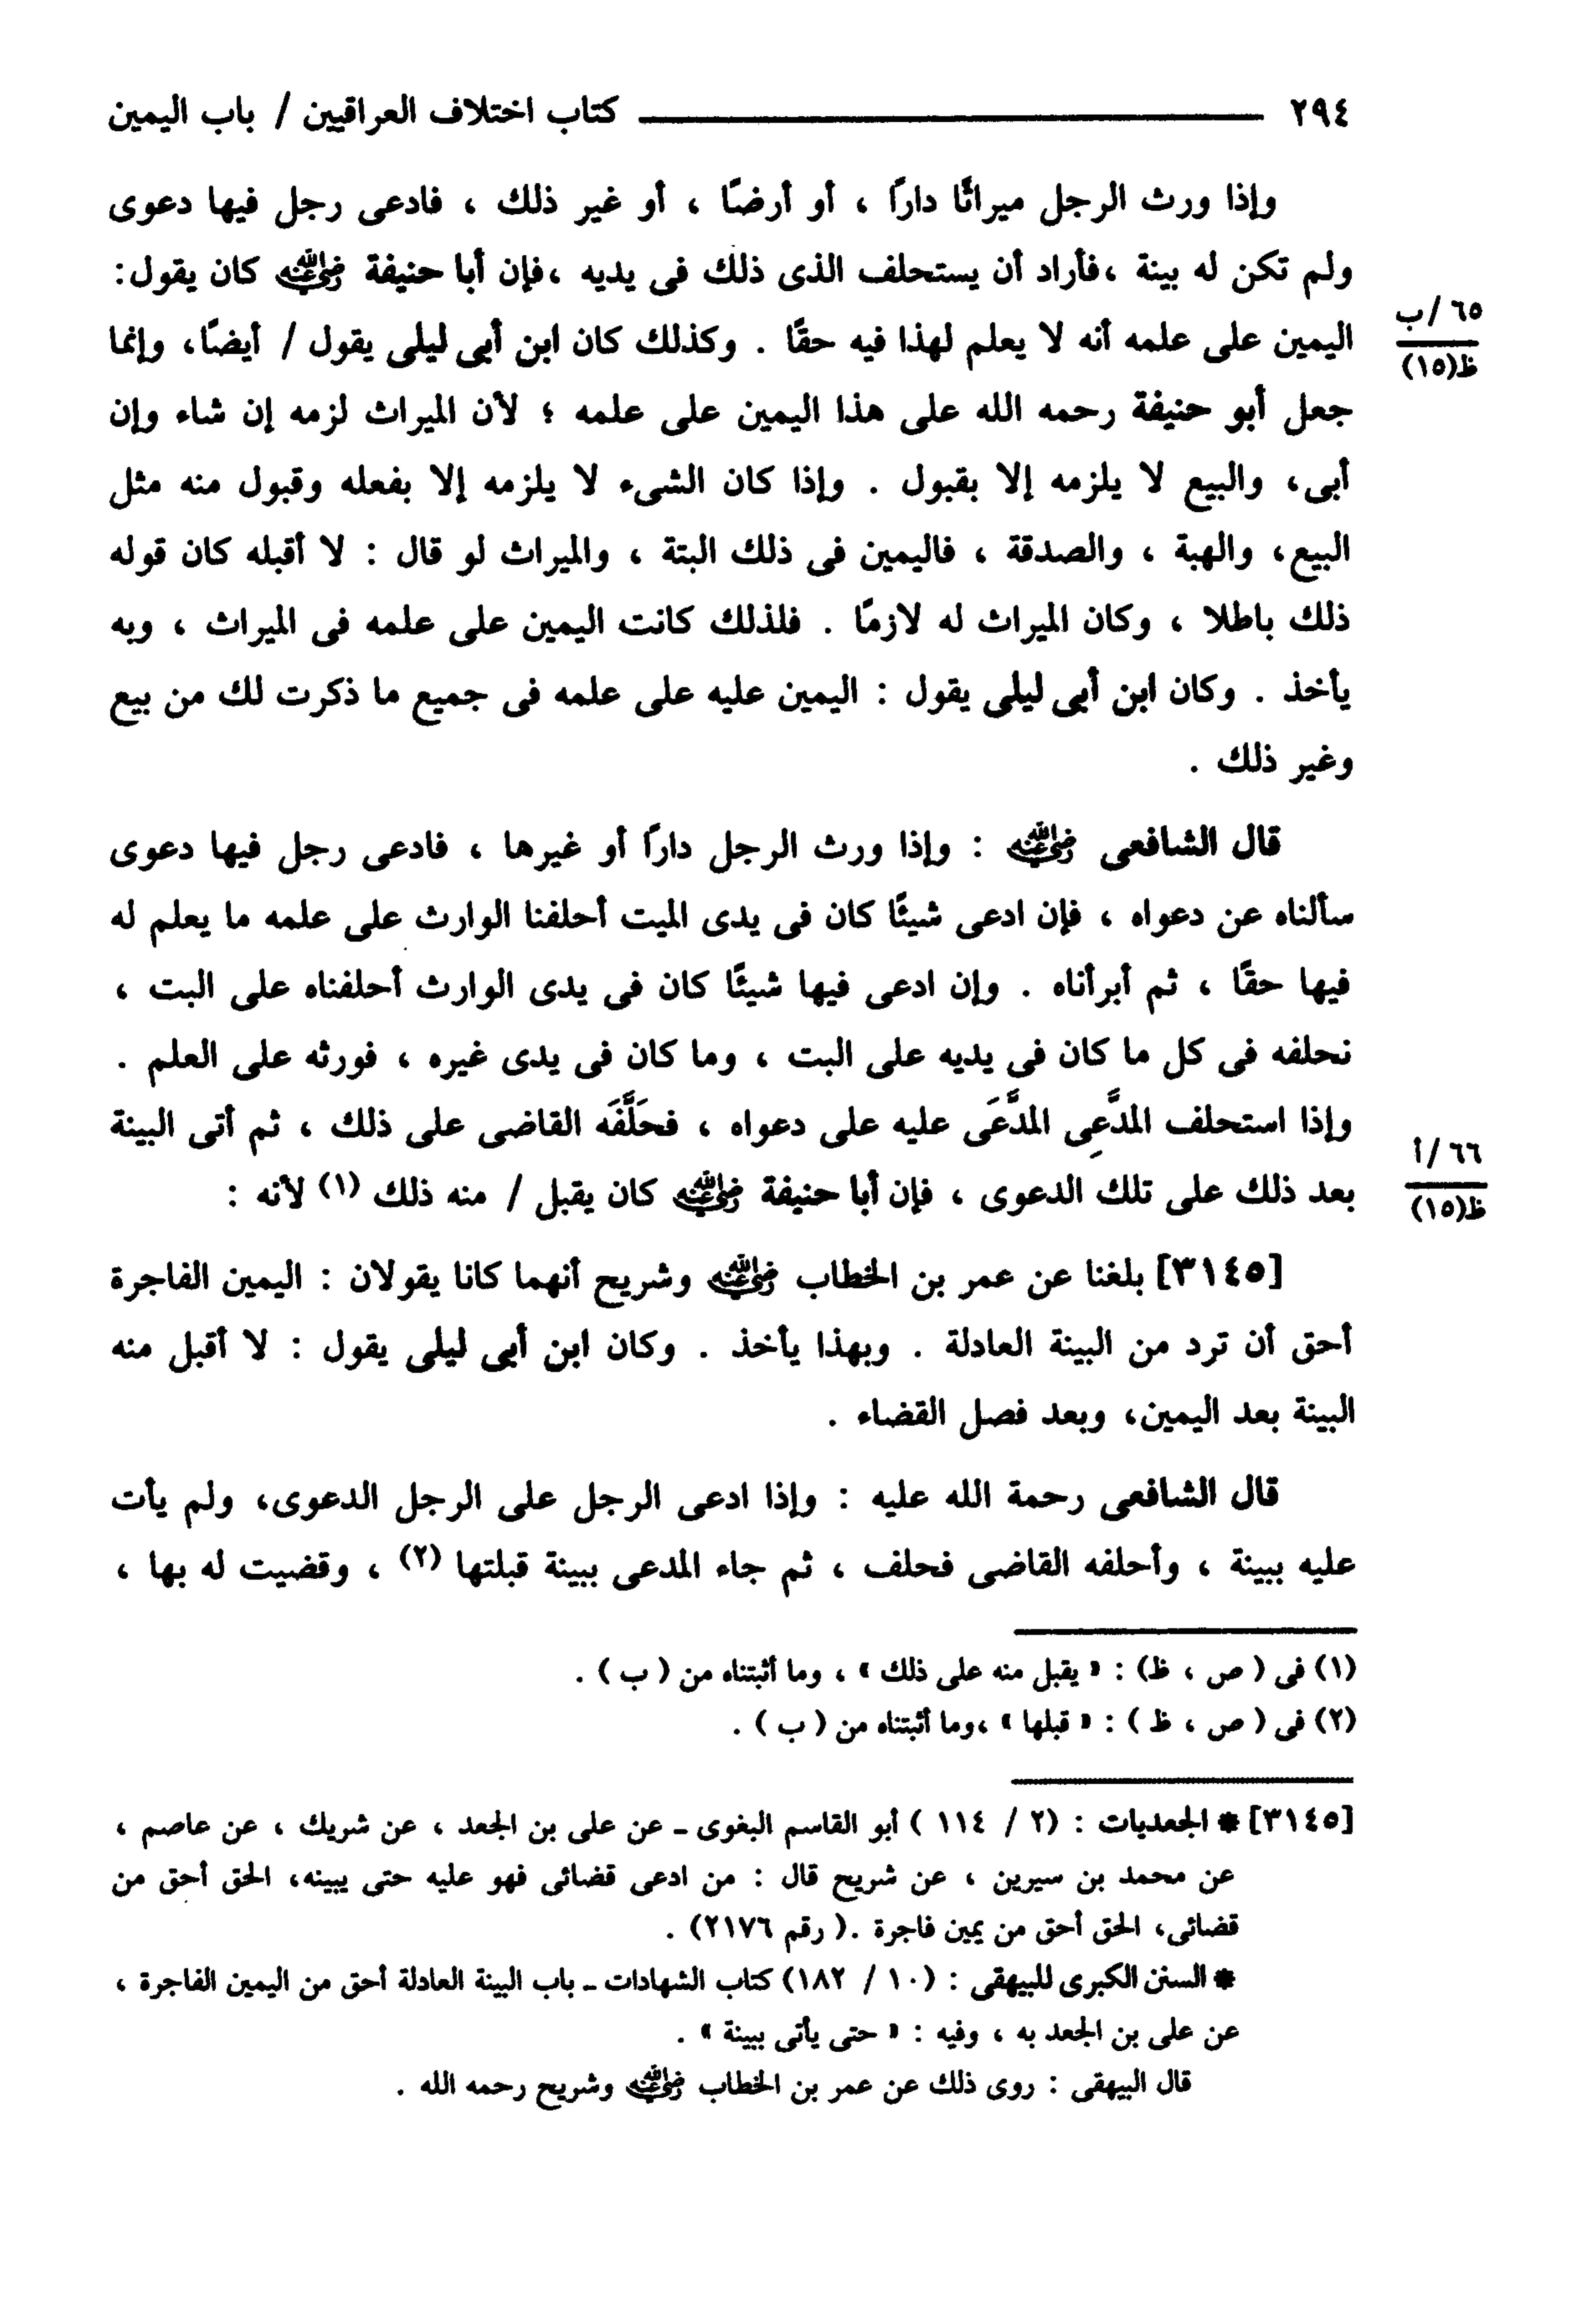 ٢٩٤ ــــــــــــــــــــ كتاب اختلاف العراقيين / باب اليمين
وإذا ورث الرجل ميراثًا دارًا ، أو أرضًا ، أو غير ذلك ، فادعى رجل فيها دعوى
ولم تكن له بينة ،فأراد أن يستحلف الذى ذلك فى يديه ،فإن أبا حنيفة رضي الله عنه كان يقول:
اليمين على علمه أنه لا يعلم لهذا فيه حقًا . وكذلك كان ابن أبى ليلى يقول / أيضًا، وإنما
٦٥/ب
ظ(١٥)
جعل أبو حنيفة رحمه الله على هذا اليمين على علمه ؛ لأن الميراث لزمه إن شاء وإن
أبى، والبيع لا يلزمه إلا بقبول . وإذا كان الشىء لا يلزمه إلا بفعله وقبول منه مثل
البيع، والهبة ، والصدقة ، فاليمين فى ذلك البتة ، والميراث لو قال : لا أقبله كان قوله
ذلك باطلا ، وكان الميراث له لازمًا . فلذلك كانت اليمين على علمه فى الميراث ، وبه
يأخذ . وكان ابن أبى ليلى يقول : اليمين عليه على علمه فى جميع ما ذكرت لك من بيع
وغير ذلك .
قال الشافعى رضي الله عنه : وإذا ورث الرجل دارًا أو غيرها ، فادعى رجل فيها دعوى
سألناه عن دعواه ، فإن ادعى شيئًا كان فى يدى الميت أحلفنا الوارث على علمه ما يعلم له
فيها حقًا ، ثم أبرأناه . وإن ادعى فيها شيئًا كان فى يدى الوارث أحلفناه على البت ،
نحلفه فى كل ما كان فى يديه على البت ، وما كان فى يدى غيره ، فورثه على العلم .
وإذا استحلف المدَّعِى المدَّعَى عليه على دعواه ، فحَلَّفَه القاضى على ذلك ، ثم أتى البينة
بعد ذلك على تلك الدعوى ، فإن أبا حنيفة رضي الله عنه كان يقبل / منه ذلك (١) لأنه :
٦٦/أ
ظ(١٥)
[٣١٤٥] بلغنا عن عمر بن الخطاب رضي الله عنه وشريح أنهما كانا يقولان : اليمين الفاجرة
أحق أن ترد من البينة العادلة . وبهذا يأخذ . وكان ابن أبى ليلى يقول : لا أقبل منه
البينة بعد اليمين، وبعد فصل القضاء .
قال الشافعى رحمة الله عليه : وإذا ادعى الرجل على الرجل الدعوى، ولم يأت
عليه ببينة ، وأحلفه القاضى فحلف ، ثم جاء المدعى ببينة قبلتها (٢) ، وقضيت له بها ،
(١) فى ( ص ، ظ) : « يقبل منه على ذلك » ، وما أثبتناه من ( ب ) .
(٢) فى ( ص ، ظ ) : « قبلها » ،وما أثبتناه من ( ب ) .
[٣١٤٥] * الجعديات : (٢ / ١١٤ ) أبو القاسم البغوى ـ عن على بن الجعد ، عن شريك ، عن عاصم ،
عن محمد بن سيرين ، عن شريح قال : من ادعى قضائى فهو عليه حتى يبينه، الحق أحق من
قضائى، الحق أحق من يمين فاجرة .( رقم ٢١٧٦) .
* السنن الكبرى للبيهقى : (١٠ / ١٨٢) كتاب الشهادات ـ باب البينة العادلة أحق من اليمين الفاجرة ،
عن على بن الجعد به ، وفيه : « حتى يأتى ببينة » .
قال البيهقى : روى ذلك عن عمر بن الخطاب رضي الله عنه وشريح رحمه الله .